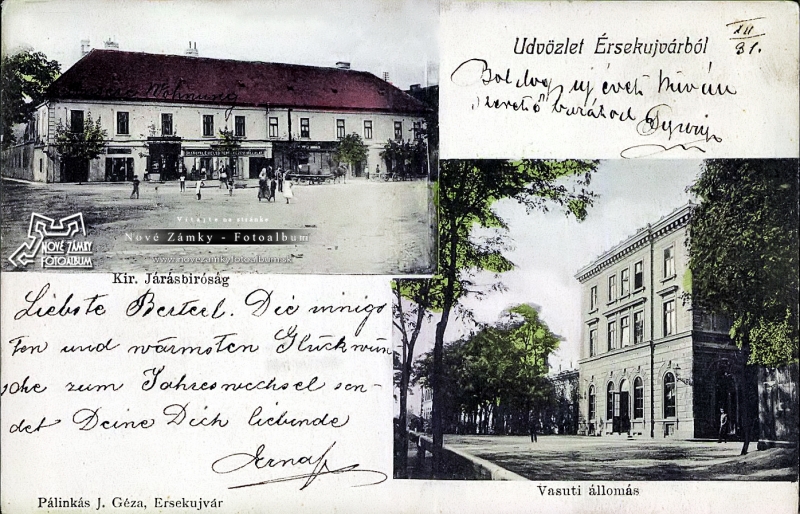 Udvözlet Érsekujvárból
XII
31.
Boldog uj évet kiván
szerető barátod
Meine Wohnung
Vitajte na stránke
Nové Zámky - Fotoalbum
www.novezamkyfotoalbum.sk
NOVÉ ZÁMKY
FOTOALBUM
Kir. Járásbiróság
Liebste Berterl. Die innigs
ten und wärmsten Glückwün
sche zum Jahreswechsel sen-
det Deine Dich liebende
Erna
Vasuti állomás
Pálinkás J. Géza, Ersekujvár